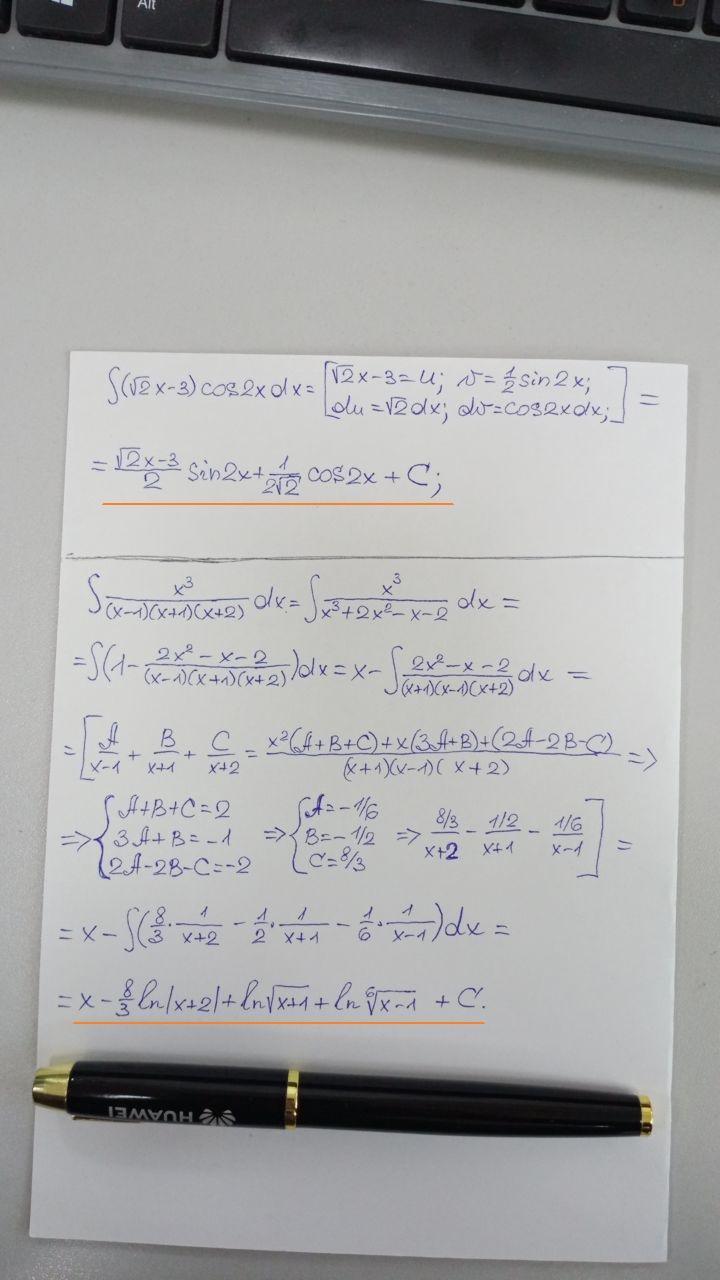 Alt
∫(√2x-3)cos2xdx=[√2x-3=u; v=1/2 sin2x;
du=√2dx; dv=cos2xdx;]=
=(√2x-3)/2 sin2x+1/(2√2) cos2x+C;
∫x³/((x-1)(x+1)(x+2)) dx=∫x³/(x³+2x²-x-2) dx=
=∫(1-(2x²-x-2)/((x-1)(x+1)(x+2)))dx=x-∫(2x²-x-2)/((x+1)(x-1)(x+2)) dx=
=[A/(x-1)+B/(x+1)+C/(x+2)=(x²(A+B+C)+x(3A+B)+(2A-2B-C))/((x+1)(x-1)(x+2))=>
=>{A+B+C=2 =>{A=-1/6
3A+B=-1 B=-1/2 => (8/3)/(x+2)-(1/2)/(x+1)-(1/6)/(x-1)]=
2A-2B-C=-2 C=8/3
=x-∫(8/3·1/(x+2)-1/2·1/(x+1)-1/6·1/(x-1))dx=
=x-8/3 ln|x+2|+ln√(x+1)+ln⁶√(x-1)+C.
HUAWEI